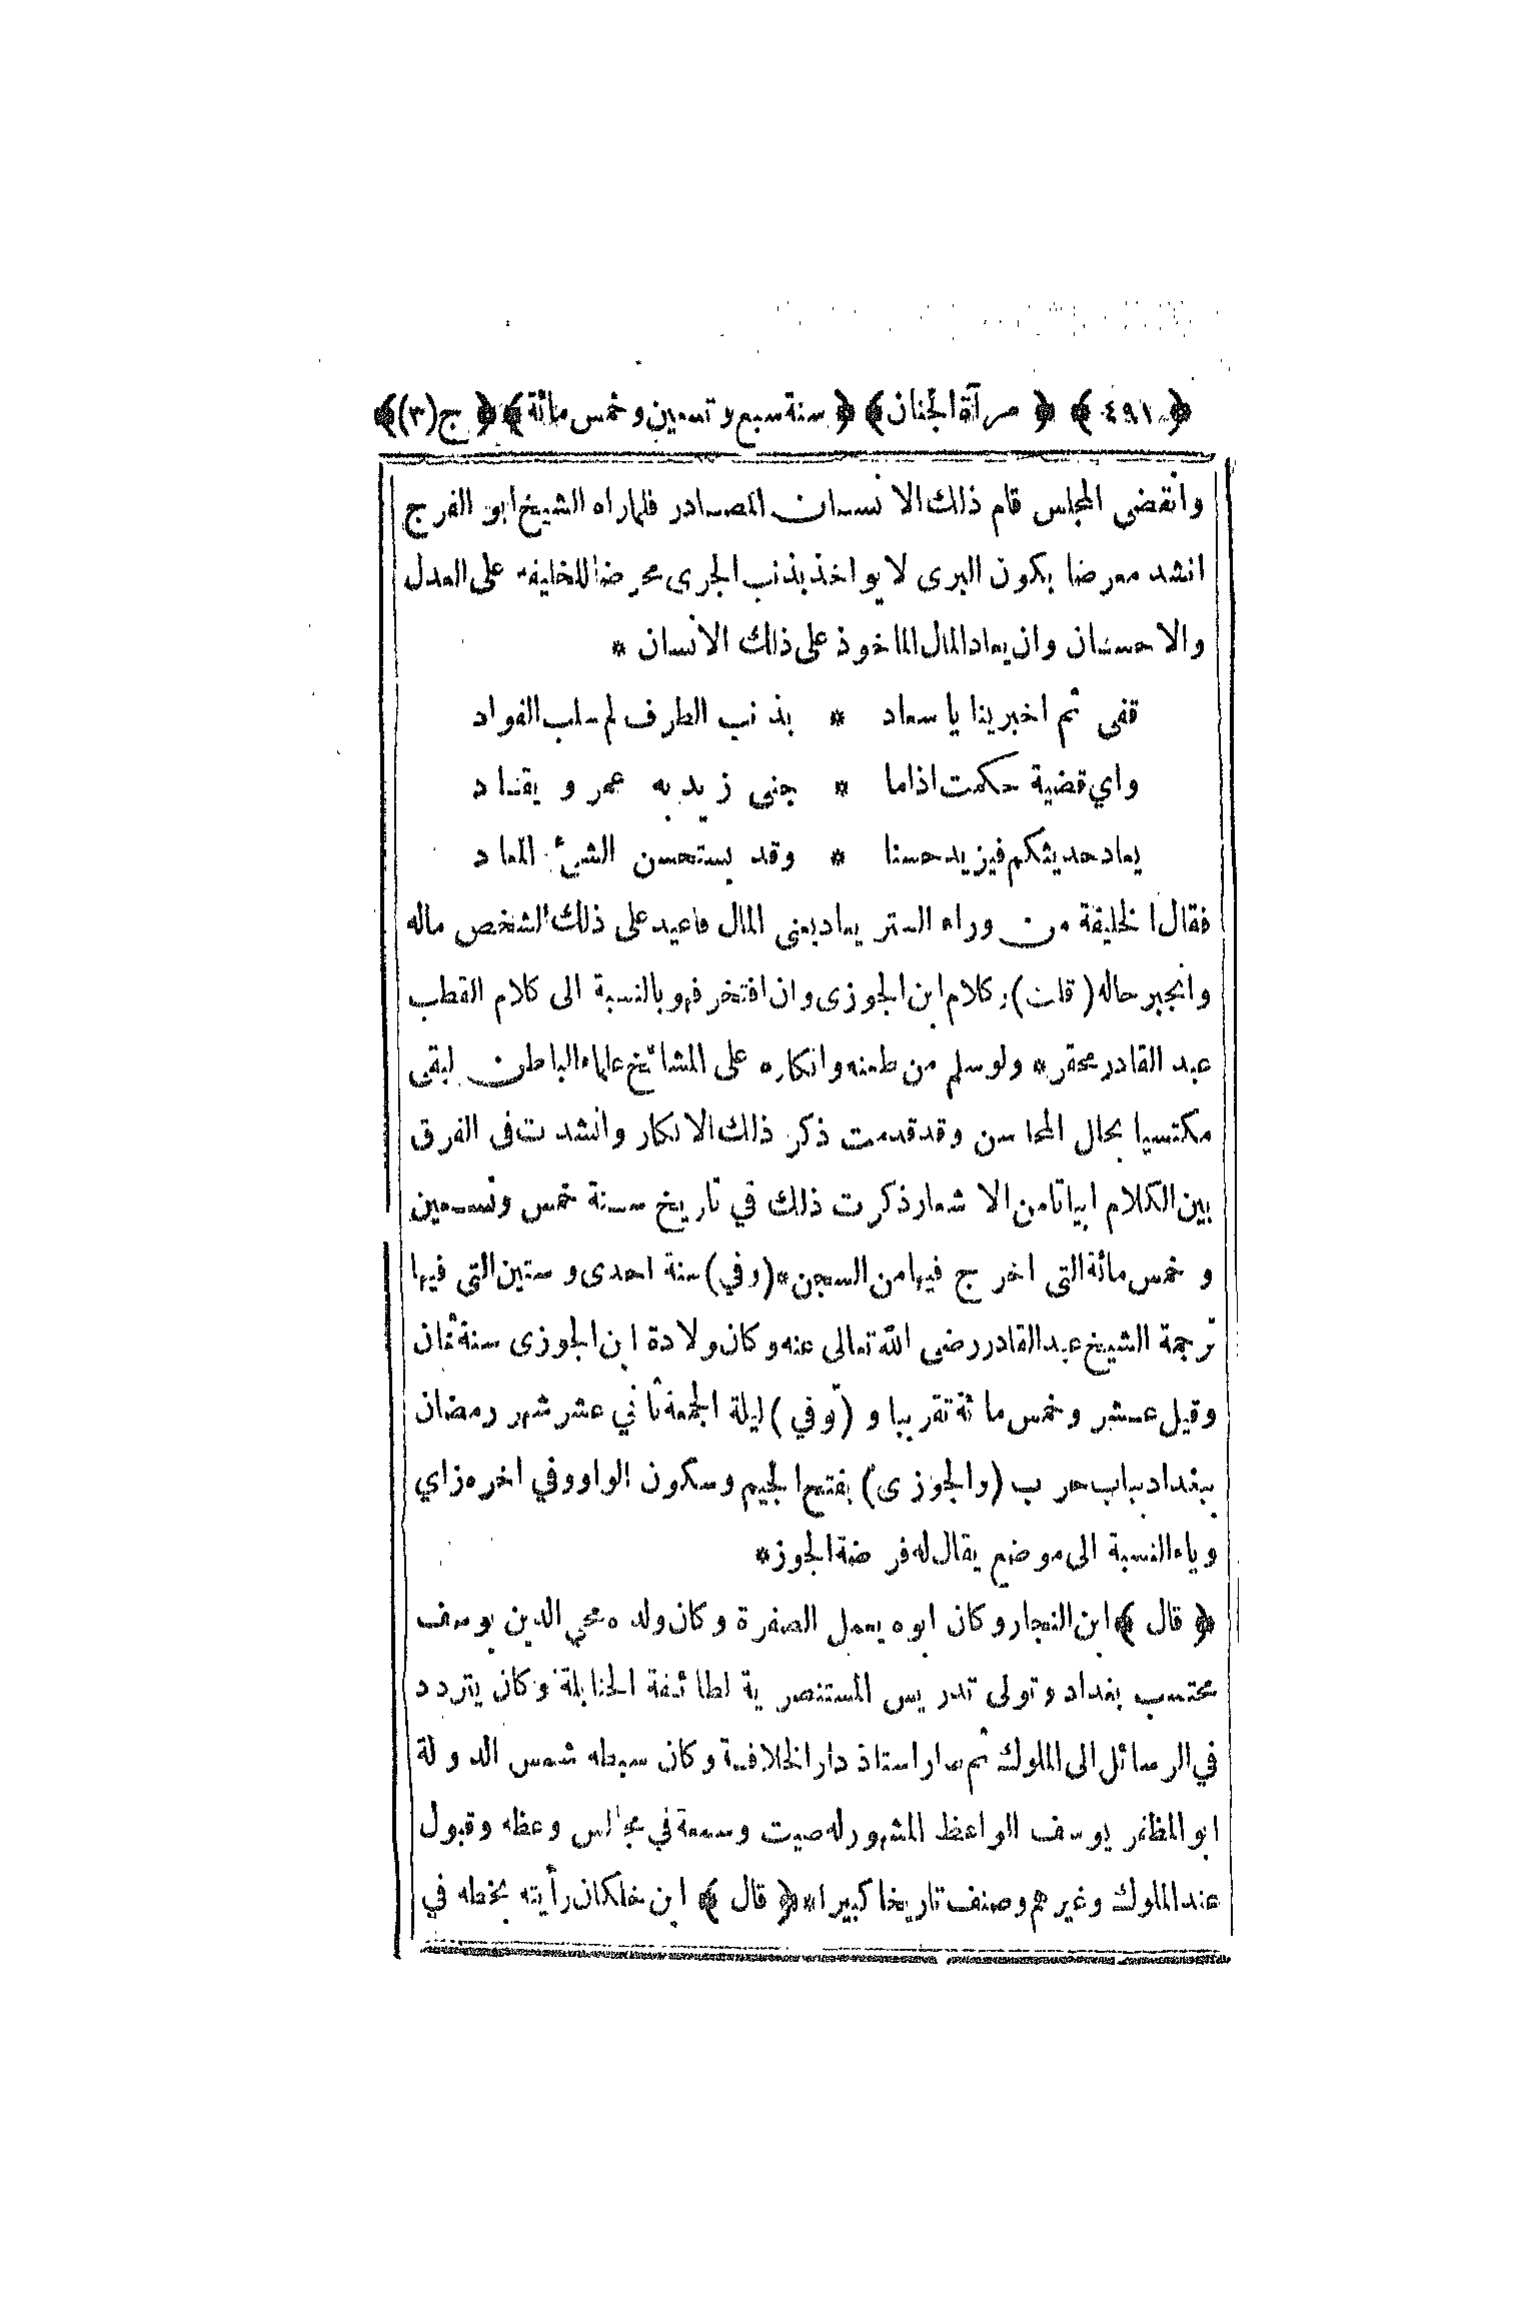 ﴿ ٤٩١ ﴾ ﴿ مرآة الجنان ﴾ ﴿ سنة سبع وتسعين وخمس مائة ﴾ ﴿ ج (٣) ﴾
وانقضى المجلس قام ذلك الانسان المصادر فلما راه الشيخ ابو الفرج
انشد معرضا بكون البرى لا يواخذ بذنب الجرى محرضا للخليفة على العدل
والاحسان وان يعاد المال الماخوذ على ذلك الانسان *
قفى ثم اخبرينا يا سعاد * بذنب الطرف لم سلب الفواد
واي قضية حكمت اذا ما * جنى زيد به عمر و يقاد
يعاد حديثكم فيزيد حسنا * وقد يستحسن الشىء المعاد
فقال الخليفة من وراء الستر يعاد يعنى المال فاعيد على ذلك الشخص ماله
وانجبر حاله (قلت) وكلام ابن الجوزى وان افتخر فهو بالنسبة الى كلام القطب
عبد القادر محقر * ولو سلم من طعنه وانكاره على المشائخ علماء الباطن لبقى
مكتسيا بحال المحاسن وقد قدمت ذكر ذلك الانكار وانشدت فى الفرق
بين الكلام ابياتا من الاشعار ذكرت ذلك في تاريخ سنة خمس وتسعين
وخمس مائة التى اخرج فيها من السجن * (وفي) سنة احدى وستين التى فيها
ترجمة الشيخ عبد القادر رضى الله تعالى عنه وكان ولادة ابن الجوزى سنة ثمان
وقيل عشر وخمس مائة تقريبا و (توفي) ليلة الجمعة ثاني عشر شهر رمضان
ببغداد بباب حرب (والجوزى) بفتح الجيم وسكون الواو وفي اخره زاي
وياء النسبة الى موضع يقال له فرضة الجوز *
﴿ قال ﴾ ابن النجار وكان ابوه يعمل الصفرة وكان ولده محي الدين يوسف
محتسب بغداد وتولى تدريس المستنصرية لطائفة الحنابلة وكان يتردد
في الرسائل الى الملوك ثم صار استاذ دار الخلافة وكان سبطه شمس الدولة
ابو المظفر يوسف الواعظ المشهور له صيت وسمعة في مجالس وعظه وقبول
عند الملوك وغيرهم وصنف تاريخا كبيرا * ﴿ قال ﴾ ابن خلكان رأيته بخطه في